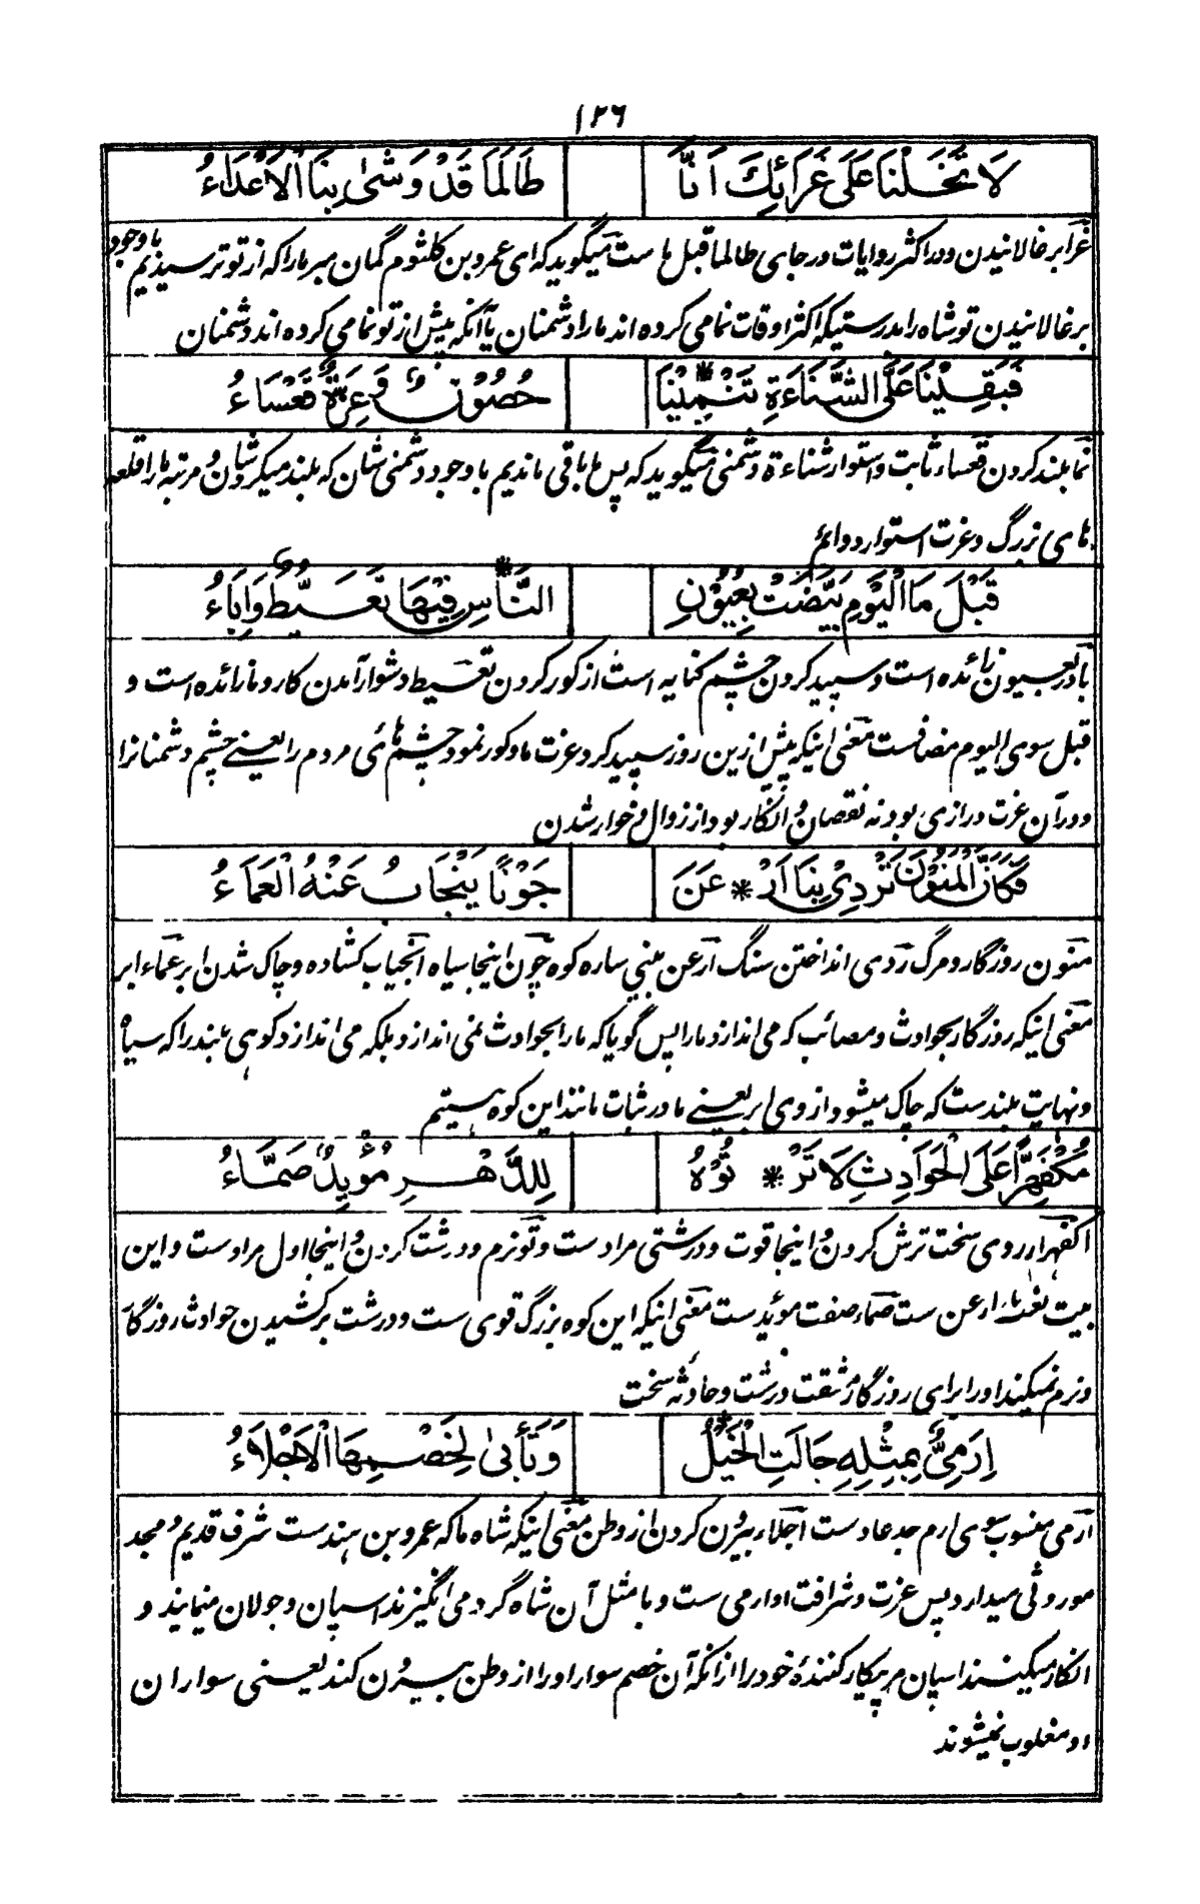 ١٢٦
لَا تَخَلْنَا عَلَى غَرَائِكَ اَنَّا طَالَمَا قَدْ وَشَىٰ بِنَا الْاَعْدَاءُ
غرا برغالانیدن ودر اکثر روایات در جای طالما قبل ما ست میگوید که ای عمرو بن کلثوم گمان مبر ما را که از تو ترسیدیم باوجود
برغالانیدن تو شاه را بدرستیکه اکثر اوقات نمامی کرده اند ما را دشمنان یا آنکه پیش از تو نمامی کرده اند دشمنان
فَبَقِیْنَا عَلَى الشَّنَاءَةِ تَنْمِیْنَا * حُصُوْنٌ وَعِزَّةٌ قَعْسَاءُ
نما بلند کردن قعساء ثابت و استوار شناءة دشمنی میگوید که پس ما باقی ماندیم با وجود دشمنی شان که بلند میکرد شان و مرتبه ما را قلعه
های بزرگ و عزت استوار و دائم
قَبْلَ مَا الْیَوْمِ بَیَّضَتْ بِعُیُوْنِ * النَّاسِ فِیْهَا تَعَیُّطٌ وَاِبَاءُ
با در بعیون زائده است و سپید کردن چشم کنایه است از کور کردن تعیط دشوار آمدن کار و ما زائده است و
قبل سوی الیوم مضافست معنی اینکه پیش ازین روز سپید کرد عزت ما و کور نمود چشم های مردم را یعنے چشم دشمنانرا
ودر آن عزت درازی بود نه نقصان و انکار بود از زوال و خوار شدن
فَکَاَنَّ الْمَنُوْنَ تَرْدِیْ بِنَا اَرْ * عَنَ جَوْنًا یَنْجَابُ عَنْهُ الْعَمَاءُ
منون روزگار و مرگ ردی انداختن سنگ ارعن بینی ساره کوه جون اینجا سیاه انجیاب کشاده و چاک شدن ابر عماء ابر
معنی اینکه روزگار بحوادث و مصائب که می اندازد ما را پس گویا که ما را بحوادث نمی اندازد بلکه می اندازد کوهی بلند را که سیاه
ونهایت بلند ست که چاک میشود از وی ابر یعنے ما در ثبات مانند این کوه هستیم
مُکْفَهِرًّا عَلَى الْحَوَادِثِ لَا تَرْ * تُوْهُ لِلدَّهْرِ مُؤْیِدٌ صَمَّاءُ
اکفهرار روی سخت ترش کردن و اینجا قوت و درشتی مراد ست و رتو نرم و درشت کردن و اینجا اول مراد ست و این
بیت نعت ارعن ست صماء صفت موئد ست معنی اینکه این کوه بزرگ قوی ست و درشت بر کشیدن حوادث روزگار
ونرم نمیکند او را برای روزگار مشقت درشت و حادثه سخت
اِرَمِیٌّ بِمِثْلِهِ جَالَتِ الْخَیْلُ * وَتَأْبىٰ لِخَصْمِهَا الْاَجْلَاءُ
ارمی منسوب سوی ارم جد عاد ست اجلاء بیرون کردن از وطن معنی اینکه شاه ما که عمرو بن هند ست شرف قدیم و مجد
موروثی میدارد پس عزت و شرافت او ارمی ست و با مثل آن شاه گرد می انگیزند اسپان و جولان مینمایند و
انکار میکنند اسپان مر پیکار کنندۀ خود را از انکه آن خصم سوار او را از وطن بیرون کند یعنی سواران
او مغلوب نمیشوند